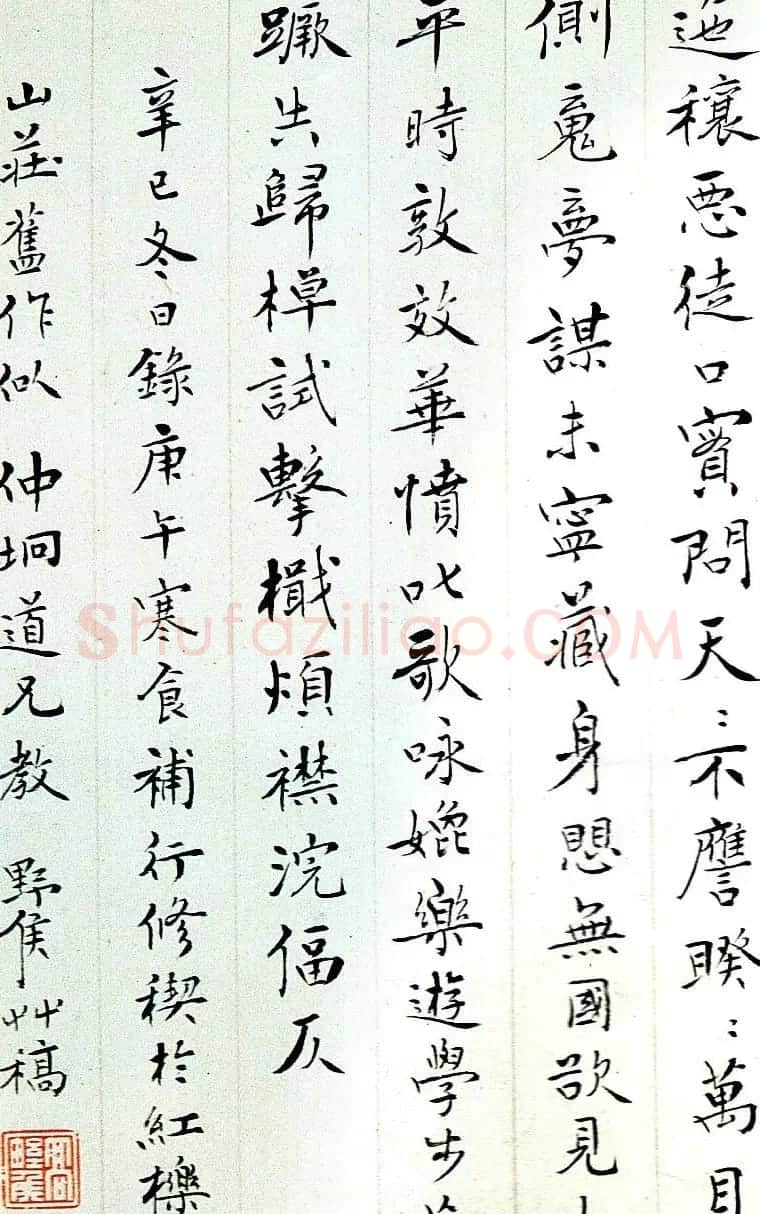 迤穰惡徒口實問天〻不譍睽〻萬目
側𡲰夢謀未寧藏身愳無國欲見
平時敦效華憤叱歌咏嬎樂遊學步
蹶告歸棹試擊檝煩襟浣偪仄
辛巳冬日錄庚午寒食補行修稧於紅櫟
山莊舊作似 仲坰道兄教 野侯艸稿
Shufaziliao.COM